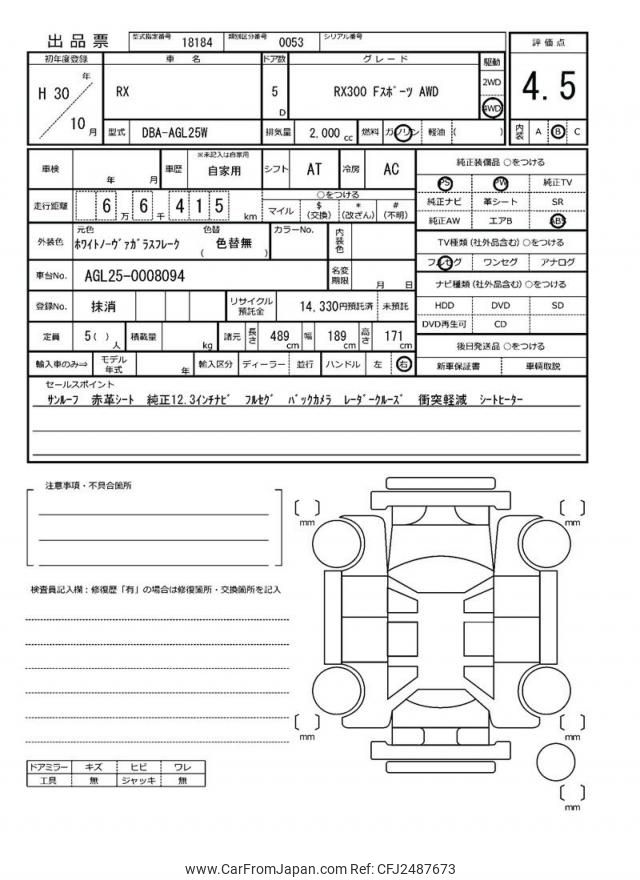 出品票
型式指定番号 18184 類別区分番号 0053 シリアル番号
初年度登録 車名 ドア数 グレード 駆動 評価点
H 30 年 10 月
RX 5 D RX300 Fスポーツ AWD 2WD 4WD 4.5
型式 DBA-AGL25W 排気量 2,000 cc 燃料 ガソリン 軽油 ( ) 内装 A B C
車検 年 月 車歴 ※未記入は自家用 自家用 シフト AT 冷房 AC
純正装備品 ○をつける
PS PW 純正TV
純正ナビ 革シート SR
純正AW エアB ABS
走行距離 6 6万 6千 4 1 5 km ○をつける
マイル $(交換) *(改ざん) #(不明)
外装色 元色 ホワイトノーヴァガラスフレーク 色替 ( 色替無 ) カラーNo. 内装色
TV種類 (社外品含む) ○をつける
フルセグ ワンセグ アナログ
車台No. AGL25-0008094 名変期限 月 日
ナビ種類 (社外品含む) ○をつける
HDD DVD SD
DVD再生可 CD
登録No. 抹消 リサイクル預託金 14,330円預託済 未預託
定員 5( )人 積載量 kg 諸元 長さ 489cm 幅 189cm 高さ 171cm
後日発送品 ○をつける
新車保証書 車輌取説
輸入車のみ⇒ モデル年式 年 輸入区分 ディーラー 並行 ハンドル 左 右
セールスポイント
サンルーフ 赤革シート 純正12.3インチナビ フルセグ バックカメラ レーダークルーズ 衝突軽減 シートヒーター
注意事項・不具合箇所
検査員記入欄：修復歴「有」の場合は修復箇所・交換箇所を記入
〔 〕mm
〔 〕mm
〔 〕mm
〔 〕mm
〔 〕mm
ドアミラー キズ ヒビ ワレ
工具 無 ジャッキ 無
www.CarFromJapan.com Ref: CFJ2487673